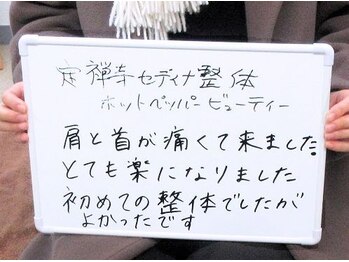 定禅寺セディナ整体
ホットペッパービューティー
肩と首が痛くて来ました。
とても楽になりました
初めての整体でしたが
よかったです